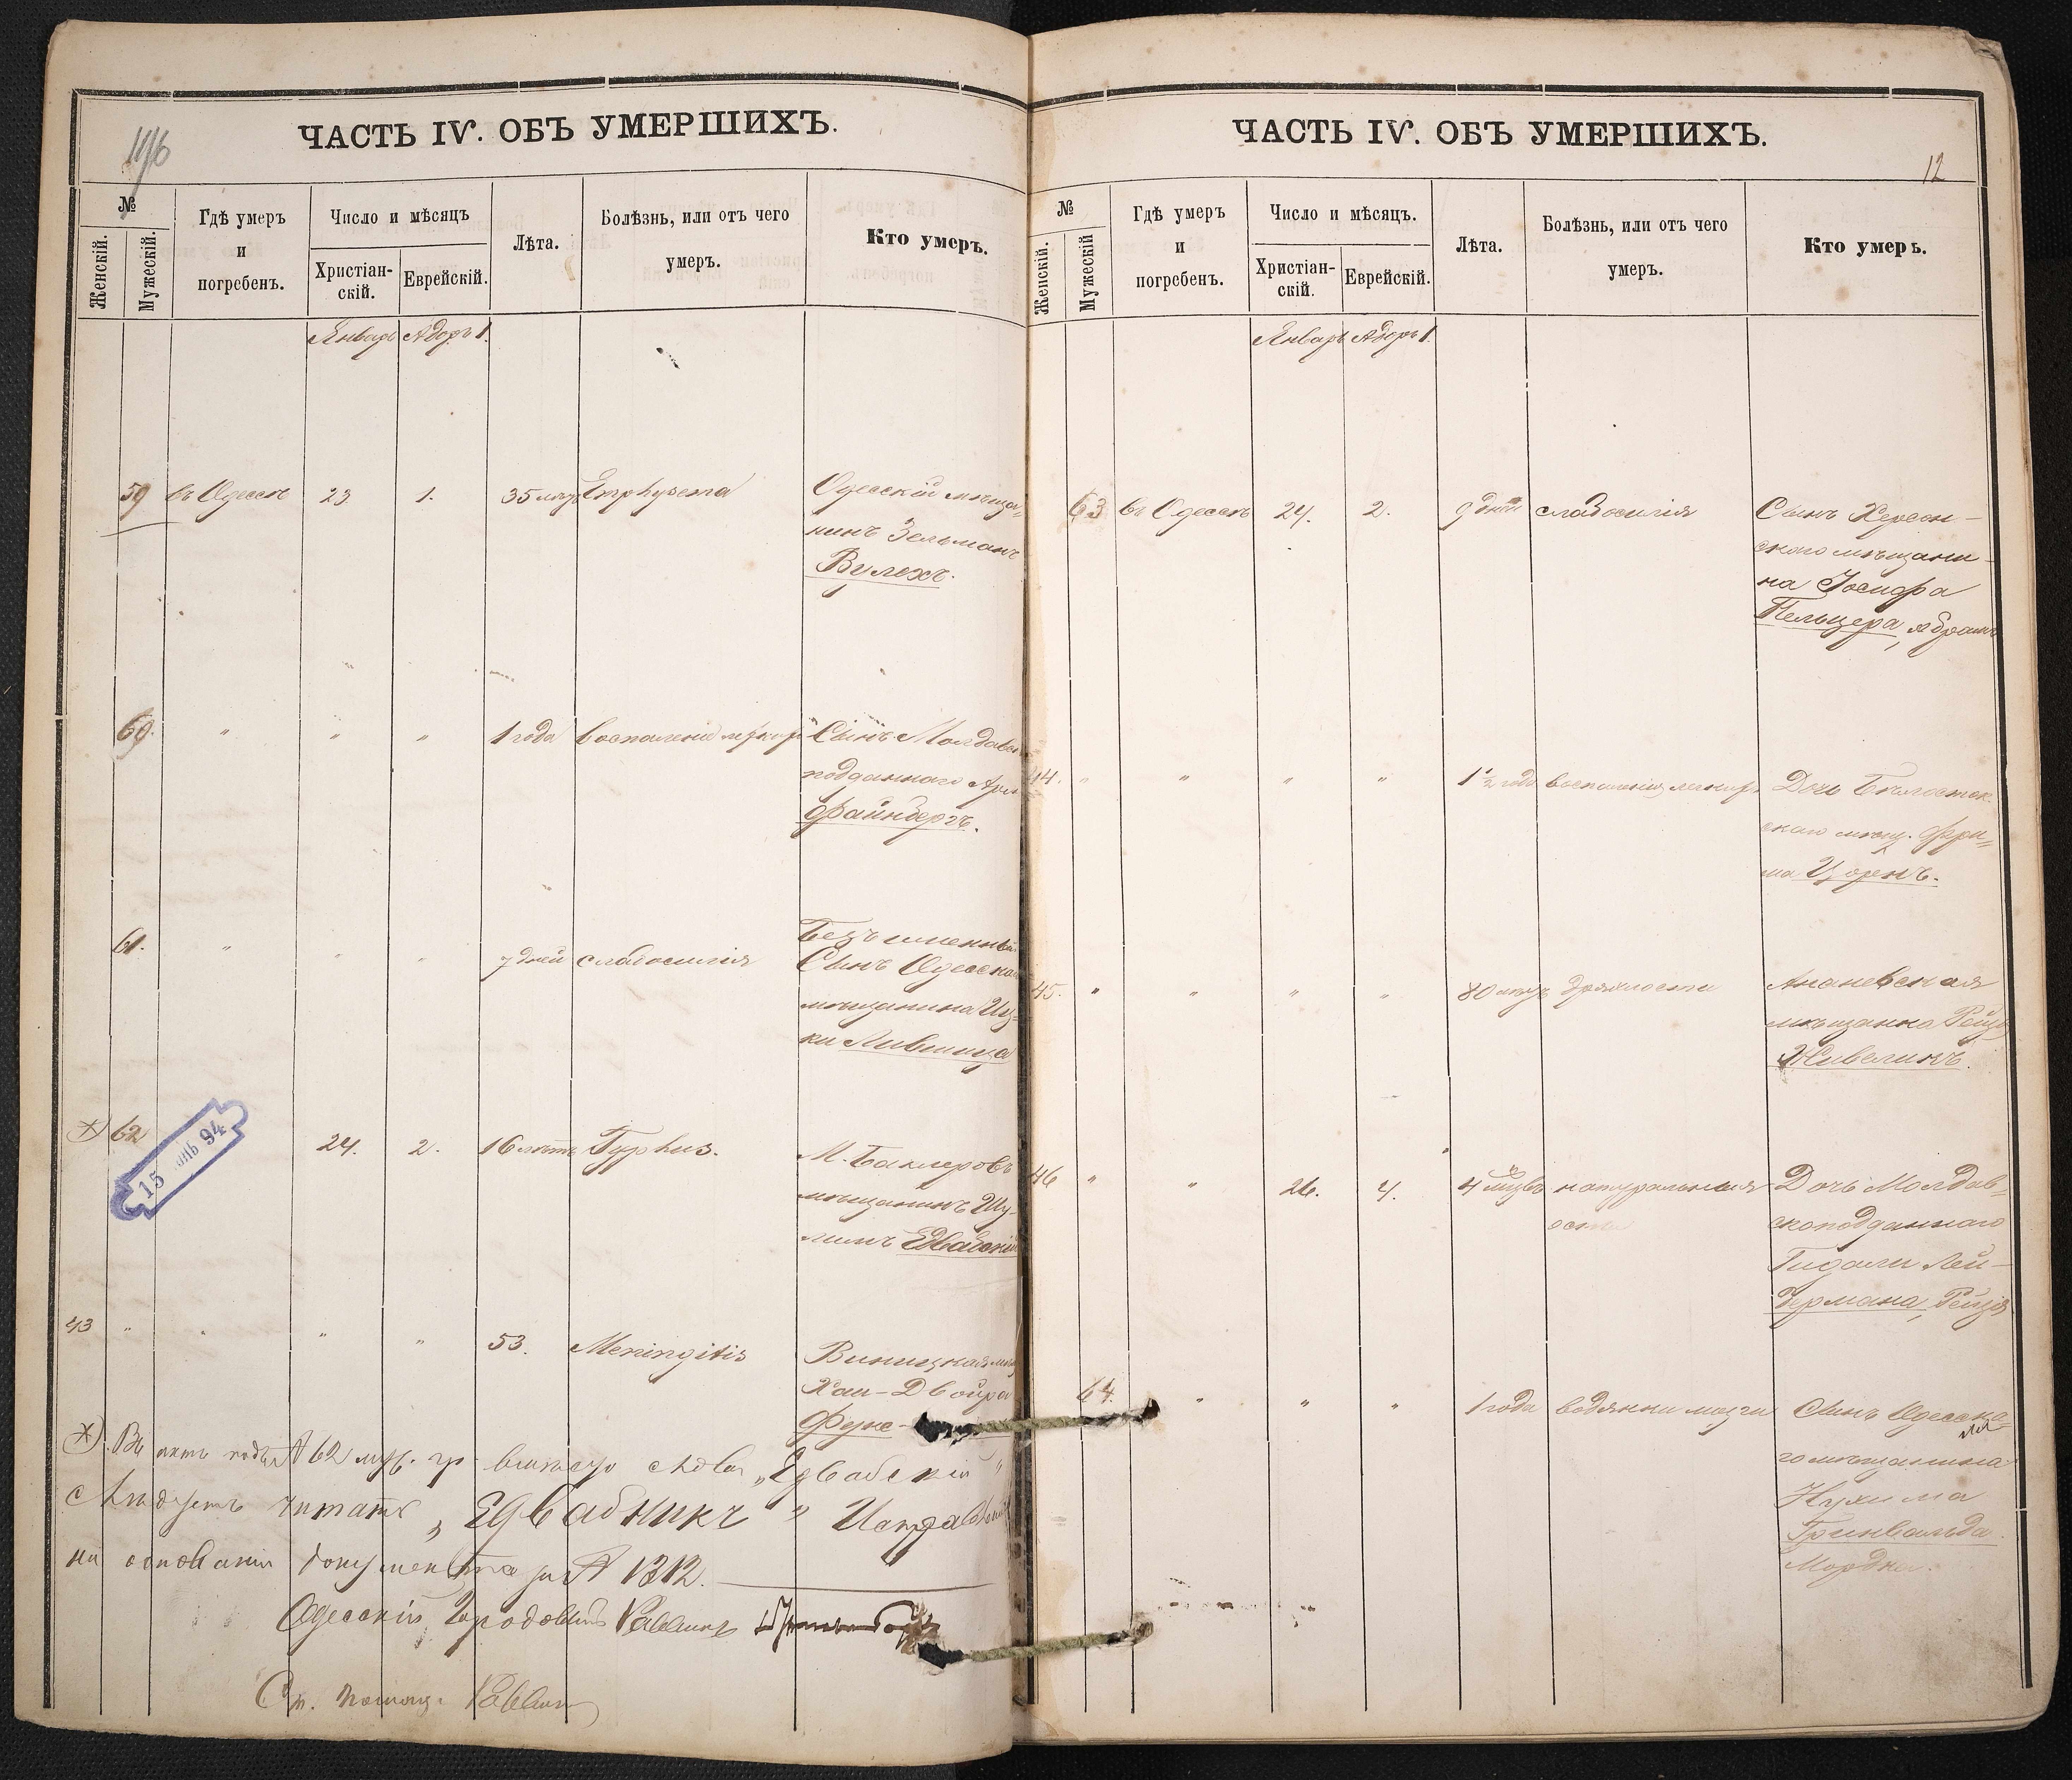 ЧАСТЬ IV. ОБЪ УМЕРШИХЪ.
№
Женскій.
Мужескій.
Гдѣ умеръ
и
погребенъ.
Число и мѣсяцъ
Христіан-
скій.
Еврейскій.
Лѣта.
Болѣзнь, или отъ чего
умеръ.
Кто умеръ.
Январь Адаръ 1.
59 въ Одессѣ 23 1. 35 лѣтъ Emphysema Одесскій мѣща-
нинъ Зельманъ
Вулехъ.
60. " " " 1 года воспаленіе легкихъ Сынъ Молдавск
подданнаго
Файнбергъ.
61. " " " 7 дней слабосилія Безъименный
Сынъ Одесска
мѣщанина Иц-
ки Лившица
х) 62 24. 2. 16 лѣтъ Typhus. М. Баклеровъ
мѣщанинъ Шу-
лимъ Едвабскій
15 94
43 " " " " 53. Meningitis Виницкая мѣщ
Хаи-Двойра
Фукс-
х). Въ актѣ подъ № 62 муж. гр. вмѣсто слова „Едвабскій"
слѣдуетъ читать „Едвабникъ"
на основаніи документа за № 1312.
Одесскій Городовой Раввинъ
Ст. помощ. Раввина
ЧАСТЬ IV. ОБЪ УМЕРШИХЪ.
12
№
Женскій.
Мужескій
Гдѣ умеръ
и
погребенъ.
Число и мѣсяцъ.
Христіан-
скій.
Еврейскій.
Лѣта.
Болѣзнь, или отъ чего
умеръ.
Кто умеръ.
Январь Адаръ 1.
63 въ Одессѣ 24. 2. 9 дней слабосилія Сынъ Херсон-
скаго мѣщани-
на Іосифа
Пельцера, Абрамъ
44. " " " " 1½ года воспаленія легкихъ Дочь Бѣлосток.
скаго мѣщ. Фрои-
ма Цорнъ.
45. " " " " 80 лѣтъ дряхлости Ананьевская
мѣщанка Рейзя
Живелинъ.
46 " " 26. 4. 4 мѣсцвъ натуральныя Дочь Молдав-
оспа скоподданнаго
Гидали Лей-
бермана, Рейзя
64. " " " 1 года водянки мозга Сынъ Одесска-
го мѣщанина
Нухима
Гринвальда.
Мордко.